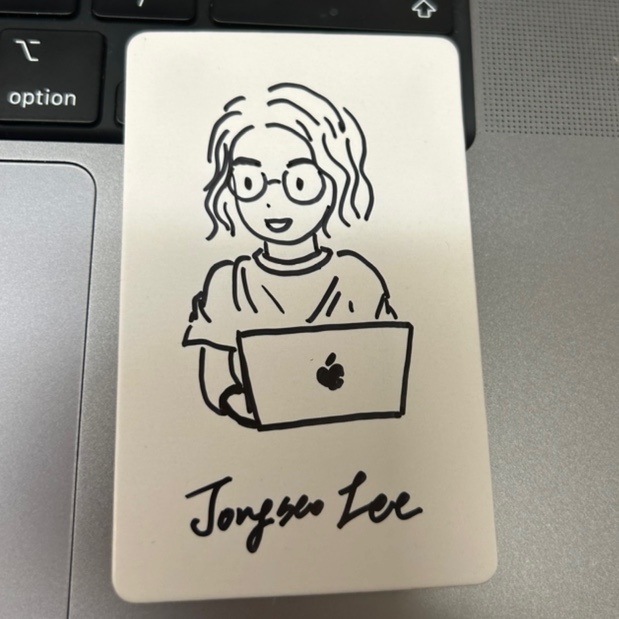 option
Jongseo Lee